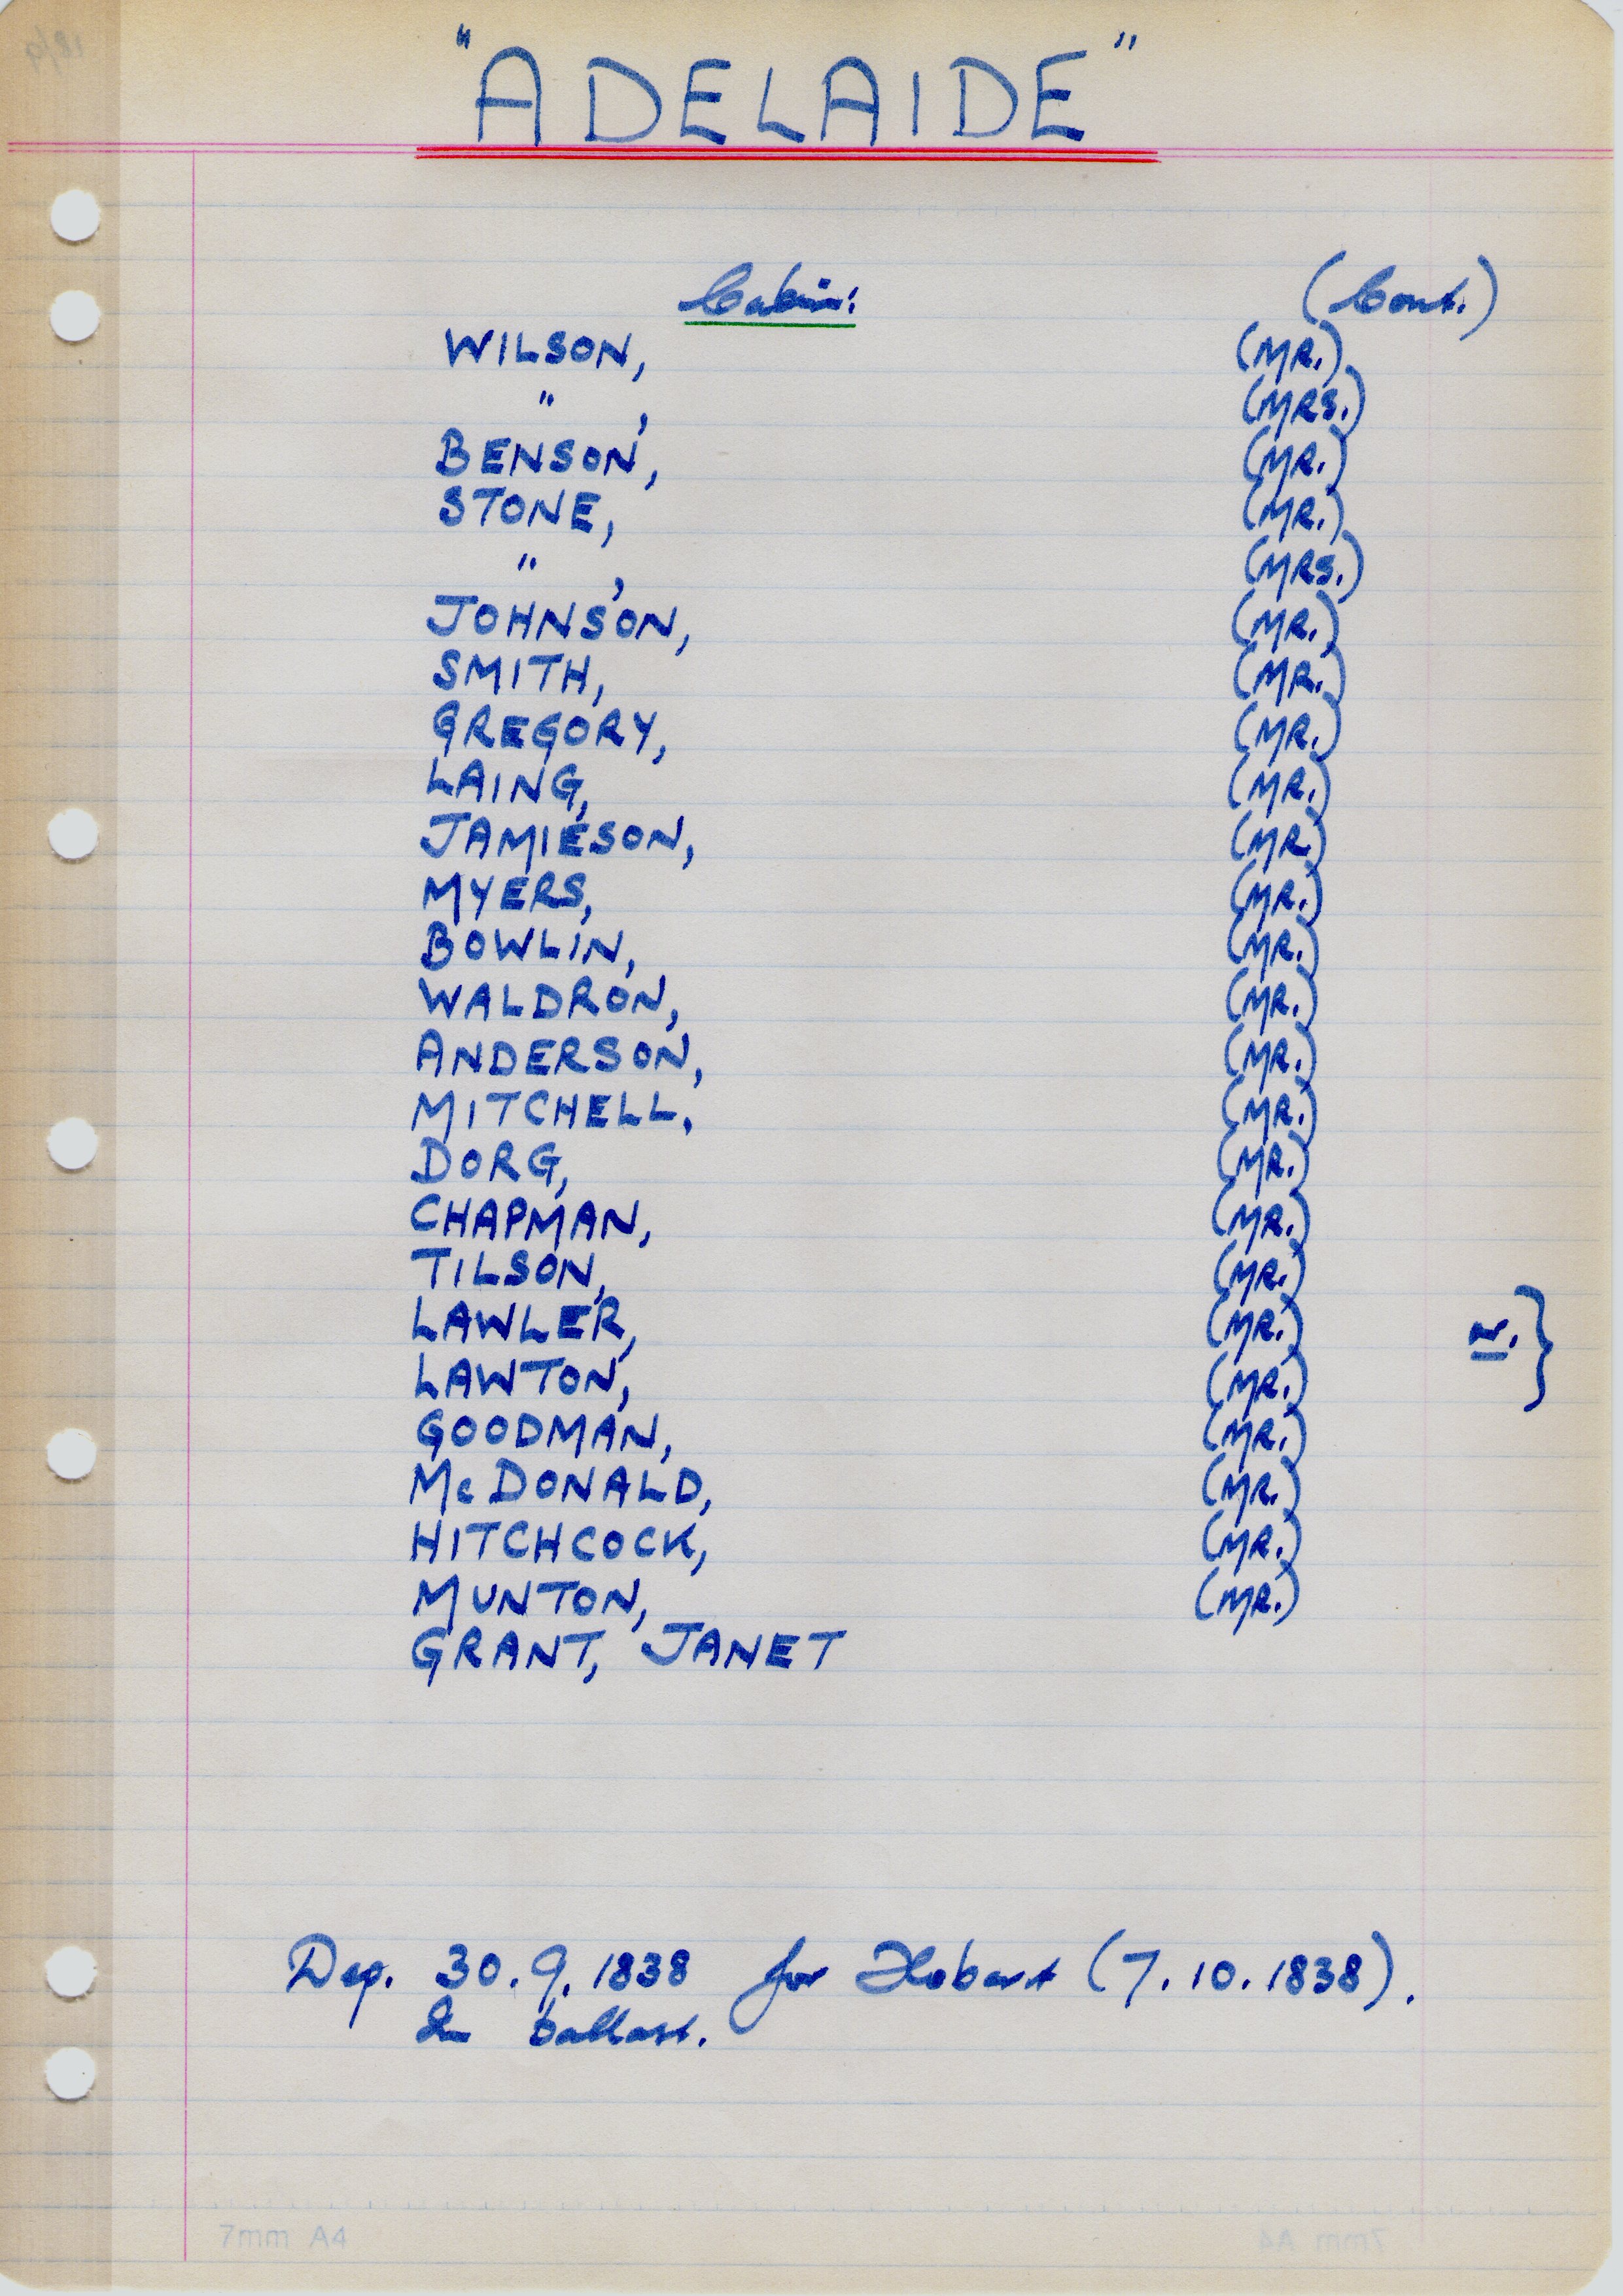 "ADELAIDE"
Cabin: (Cont.)
WILSON, (MR.)
" , (MRS.)
BENSON, (MR.)
STONE, (MR.)
" , (MRS.)
JOHNSON, (MR.)
SMITH, (MR.)
GREGORY, (MR.)
LAING, (MR.)
JAMIESON, (MR.)
MYERS, (MR.)
BOWLIN, (MR.)
WALDRON, (MR.)
ANDERSON, (MR.)
MITCHELL, (MR.)
DORG, (MR.)
CHAPMAN, (MR.)
TILSON, (MR.)
LAWLER, (MR.)
or. }
LAWTON, (MR.)
GOODMAN, (MR.)
McDONALD, (MR.)
HITCHCOCK, (MR.)
MUNTON, (MR.)
GRANT, JANET
Dep. 30.9.1838 for Hobart (7.10.1838).
In ballast.
7mm A4